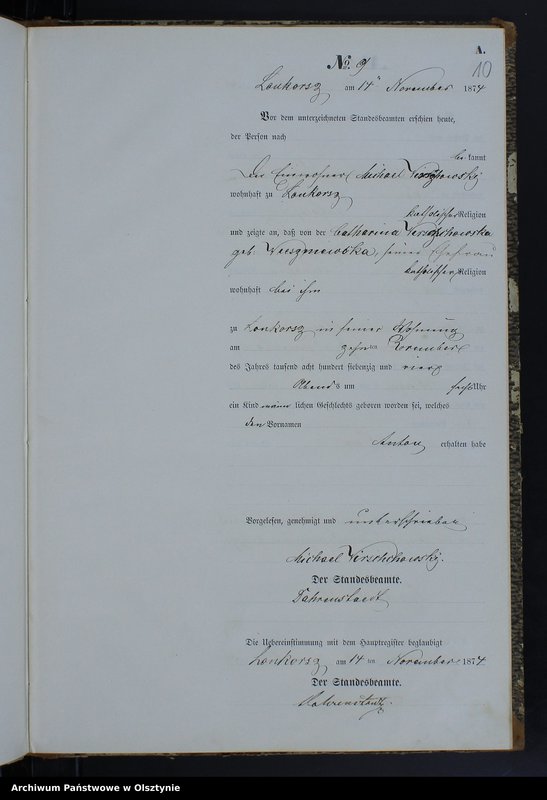 A.
10
No. 9
Lonkorsz am 14 November 1874
Vor dem unterzeichneten Standesbeamten erschien heute,
der Person nach
be kannt
Der Einwohner Michael
wohnhaft zu Lonkorsz
katholischer Religion
und zeigte an, daß von der Catharina
geb. seiner Ehefrau
katholischer Religion
wohnhaft bei ihm
zu Lonkorsz in seiner Wohnung
am zehnten November
des Jahres tausend acht hundert siebenzig und vier
Abends um sechs Uhr
ein Kind männ lichen Geschlechts geboren worden sei, welches
den Vornamen
Anton erhalten habe
Vorgelesen, genehmigt und unterschrieben
Michael
Der Standesbeamte.
Die Uebereinstimmung mit dem Hauptregister beglaubigt
Lonkorsz am 14 ten November 1874.
Der Standesbeamte.
Archiwum Państwowe w Olsztynie